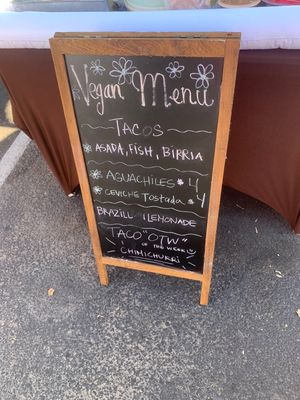 Vegan Menu
TACOS
ASADA, FISH, BIRRIA
AGUACHILES $4
CEVICHE TOSTADA $4
BRAZILL LEMONADE
TACO "OTW"
OF THE WEEK
CHIMICHURRI